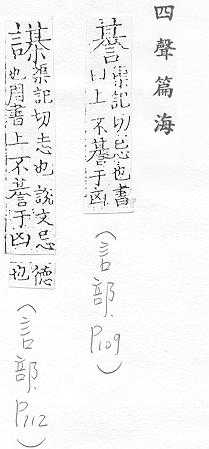 四聲篇海
諅渠記切忌也書
曰上不諅于凶
(言部.P109)
諅渠記切志也說文忌
也周書上不諅于凶德
也
(言部.P112)